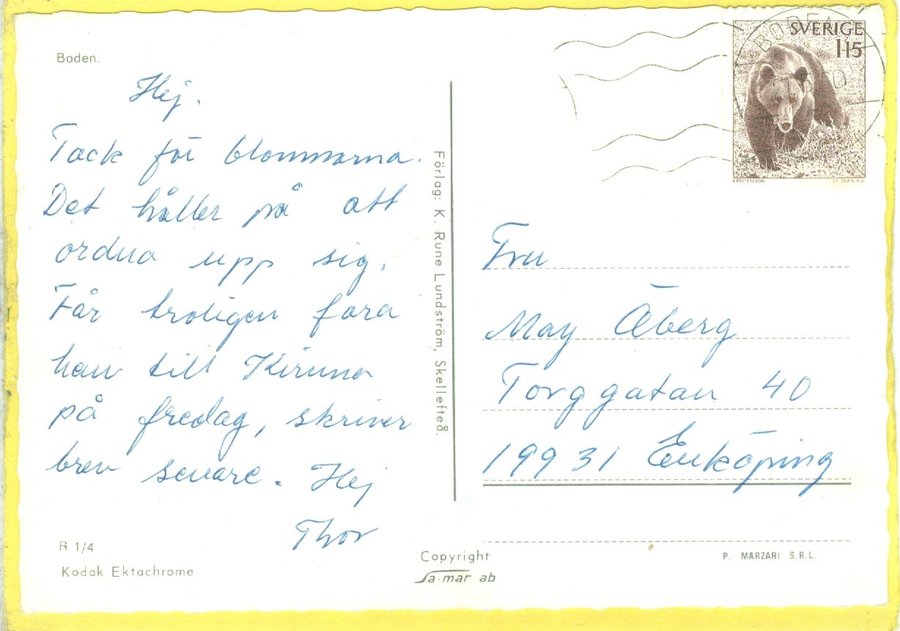 Boden.
Hej.
Tack för blommorna.
Det håller på att
ordna upp sig.
Får troligen fara
hem till Kiruna
på fredag, skriver
brev senare. Hej
Thor
R 1/4
Kodak Ektachrome
Förlag: K. Rune Lundström, Skellefteå.
Copyright
Sa-mar ab
BODEN
SVERIGE
1.15
Fru
May Åberg
Torggatan 40
199 31 Enköping
P. MARZARI S.R.L.